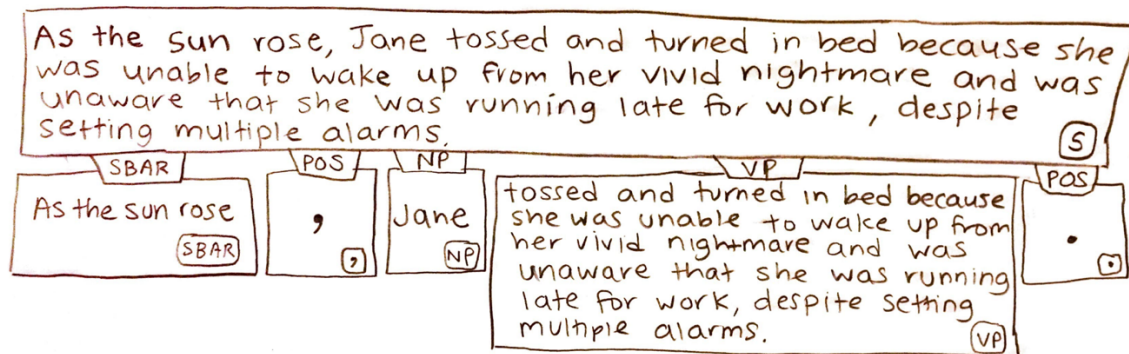 As the sun rose, Jane tossed and turned in bed because she
was unable to wake up from her vivid nightmare and was
unaware that she was running late for work, despite
setting multiple alarms.
S
SBAR
POS
NP
VP
POS
As the sun rose
SBAR
,
,
Jane
NP
tossed and turned in bed because
she was unable to wake up from
her vivid nightmare and was
unaware that she was running
late for work, despite setting
multiple alarms.
VP
.
.